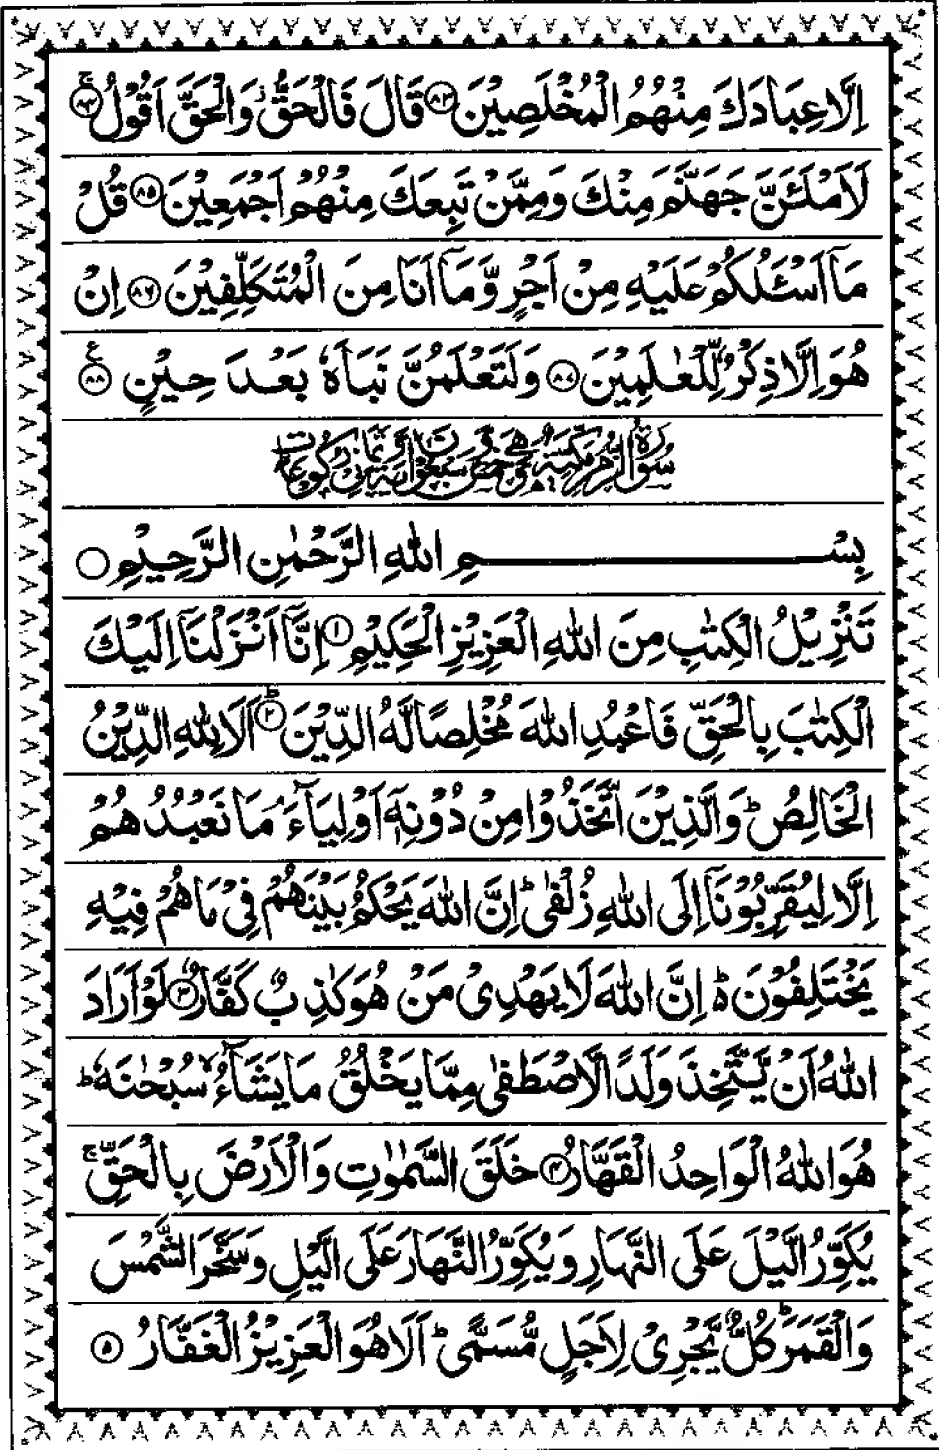 اِلَّا عِبَادَكَ مِنْهُمُ الْمُخْلَصِيْنَ ﴿۸۳﴾ قَالَ فَالْحَقُّ ز وَالْحَقَّ اَقُوْلُ ﴿۸۴﴾ ج
لَاَمْلَـَٔنَّ جَهَنَّمَ مِنْكَ وَمِمَّنْ تَبِعَكَ مِنْهُمْ اَجْمَعِيْنَ ﴿۸۵﴾ قُلْ
مَاۤ اَسْـَٔلُكُمْ عَلَيْهِ مِنْ اَجْرٍ وَّمَاۤ اَنَا مِنَ الْمُتَكَلِّفِيْنَ ﴿۸۶﴾ اِنْ
هُوَ اِلَّا ذِكْرٌ لِّلْعٰلَمِيْنَ ﴿۸۷﴾ وَلَتَعْلَمُنَّ نَبَاَهٗ بَعْدَ حِيْنٍ ﴿۸۸﴾ ع
سُوْرَةُ الزُّمَرِ مَكِّيَّةٌ وَّهِيَ خَمْسٌ وَّسَبْعُوْنَ اٰيَةً وَّثَمَانِيْ رُكُوْعَاتٍ
بِسْــــــــــــمِ اللّٰهِ الرَّحْمٰنِ الرَّحِيْمِ ○
تَنْزِيْلُ الْكِتٰبِ مِنَ اللّٰهِ الْعَزِيْزِ الْحَكِيْمِ ﴿۱﴾ اِنَّاۤ اَنْزَلْنَاۤ اِلَيْكَ
الْكِتٰبَ بِالْحَقِّ فَاعْبُدِ اللّٰهَ مُخْلِصًا لَّهُ الدِّيْنَ ﴿۲﴾ ط اَلَا لِلّٰهِ الدِّيْنُ
الْخَالِصُ ط وَالَّذِيْنَ اتَّخَذُوْا مِنْ دُوْنِهٖۤ اَوْلِيَآءَ ۘ مَا نَعْبُدُهُمْ
اِلَّا لِيُقَرِّبُوْنَاۤ اِلَى اللّٰهِ زُلْفٰى ط اِنَّ اللّٰهَ يَحْكُمُ بَيْنَهُمْ فِيْ مَا هُمْ فِيْهِ
يَخْتَلِفُوْنَ ۥ ط اِنَّ اللّٰهَ لَا يَهْدِيْ مَنْ هُوَ كٰذِبٌ كَفَّارٌ ﴿۳﴾ لَوْ اَرَادَ
اللّٰهُ اَنْ يَّتَّخِذَ وَلَدًا لَّاصْطَفٰى مِمَّا يَخْلُقُ مَا يَشَآءُ ۙ سُبْحٰنَهٗ ط
هُوَ اللّٰهُ الْوَاحِدُ الْقَهَّارُ ﴿۴﴾ خَلَقَ السَّمٰوٰتِ وَالْاَرْضَ بِالْحَقِّ ج
يُكَوِّرُ الَّيْلَ عَلَى النَّهَارِ وَيُكَوِّرُ النَّهَارَ عَلَى الَّيْلِ وَسَخَّرَ الشَّمْسَ
وَالْقَمَرَ ط كُلٌّ يَّجْرِيْ لِاَجَلٍ مُّسَمًّى ط اَلَا هُوَ الْعَزِيْزُ الْغَفَّارُ ﴿۵﴾